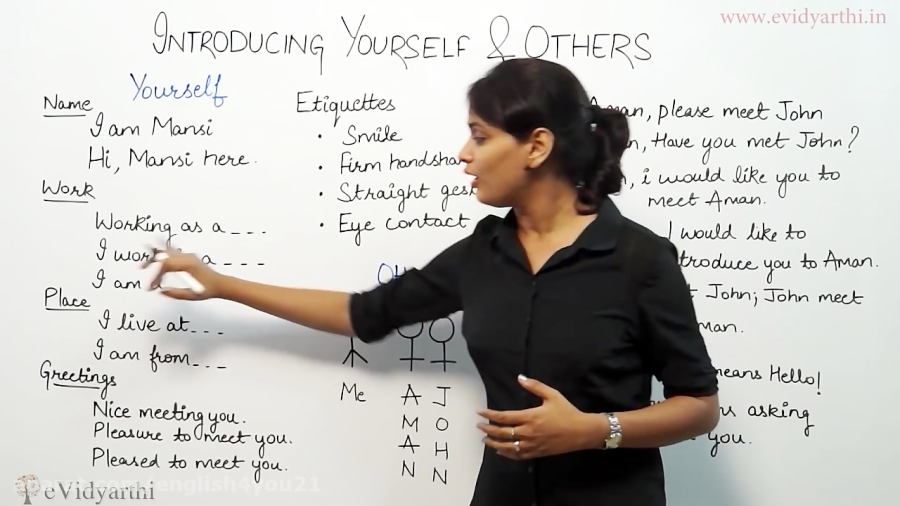 www.evidyarthi.in
INTRODUCING YOURSELF & OTHERS
Yourself
Name
I am Mansi
Hi, Mansi here.
Work
Working as a ---
a ---
I am
Place
I live at ---
I am from ---
Greetings
Nice meeting you.
Pleasure to meet you.
Pleased to meet you.
Etiquettes
• Smile
• Firm
• Straight
• Eye contact
Me
AMAN
JOHN
please meet John
Have you met John?
i would like you to
meet Aman.
I would like to
you to Aman.
John; John meet
means Hello!
asking
you.
eVidyarthi